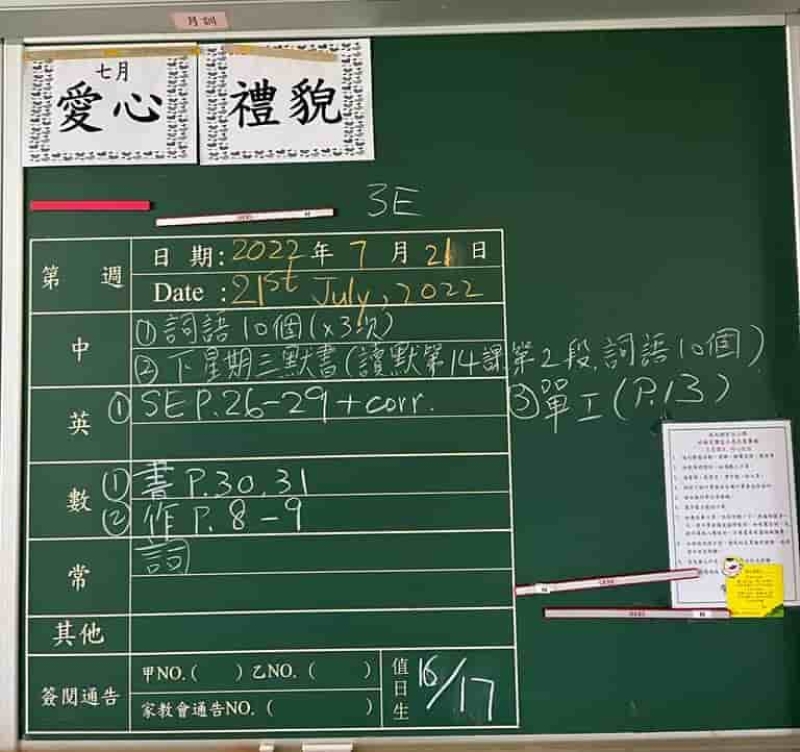 月訓
七月
愛心
禮貌
3E
第 週
日 期: 2022 年 7 月 21 日
Date : 21st July, 2022
中
① 詞語10個(x3次)
② 下星期三默書(讀默第14課第2段,詞語10個)
③ 單工(P.13)
英
① SE P.26-29 + corr.
數
① 書 P.30, 31
② 作 P. 8-9
常
詞
其他
簽閱通告
甲NO.( ) 乙NO. ( )
家教會通告NO. ( )
值日生
16/17